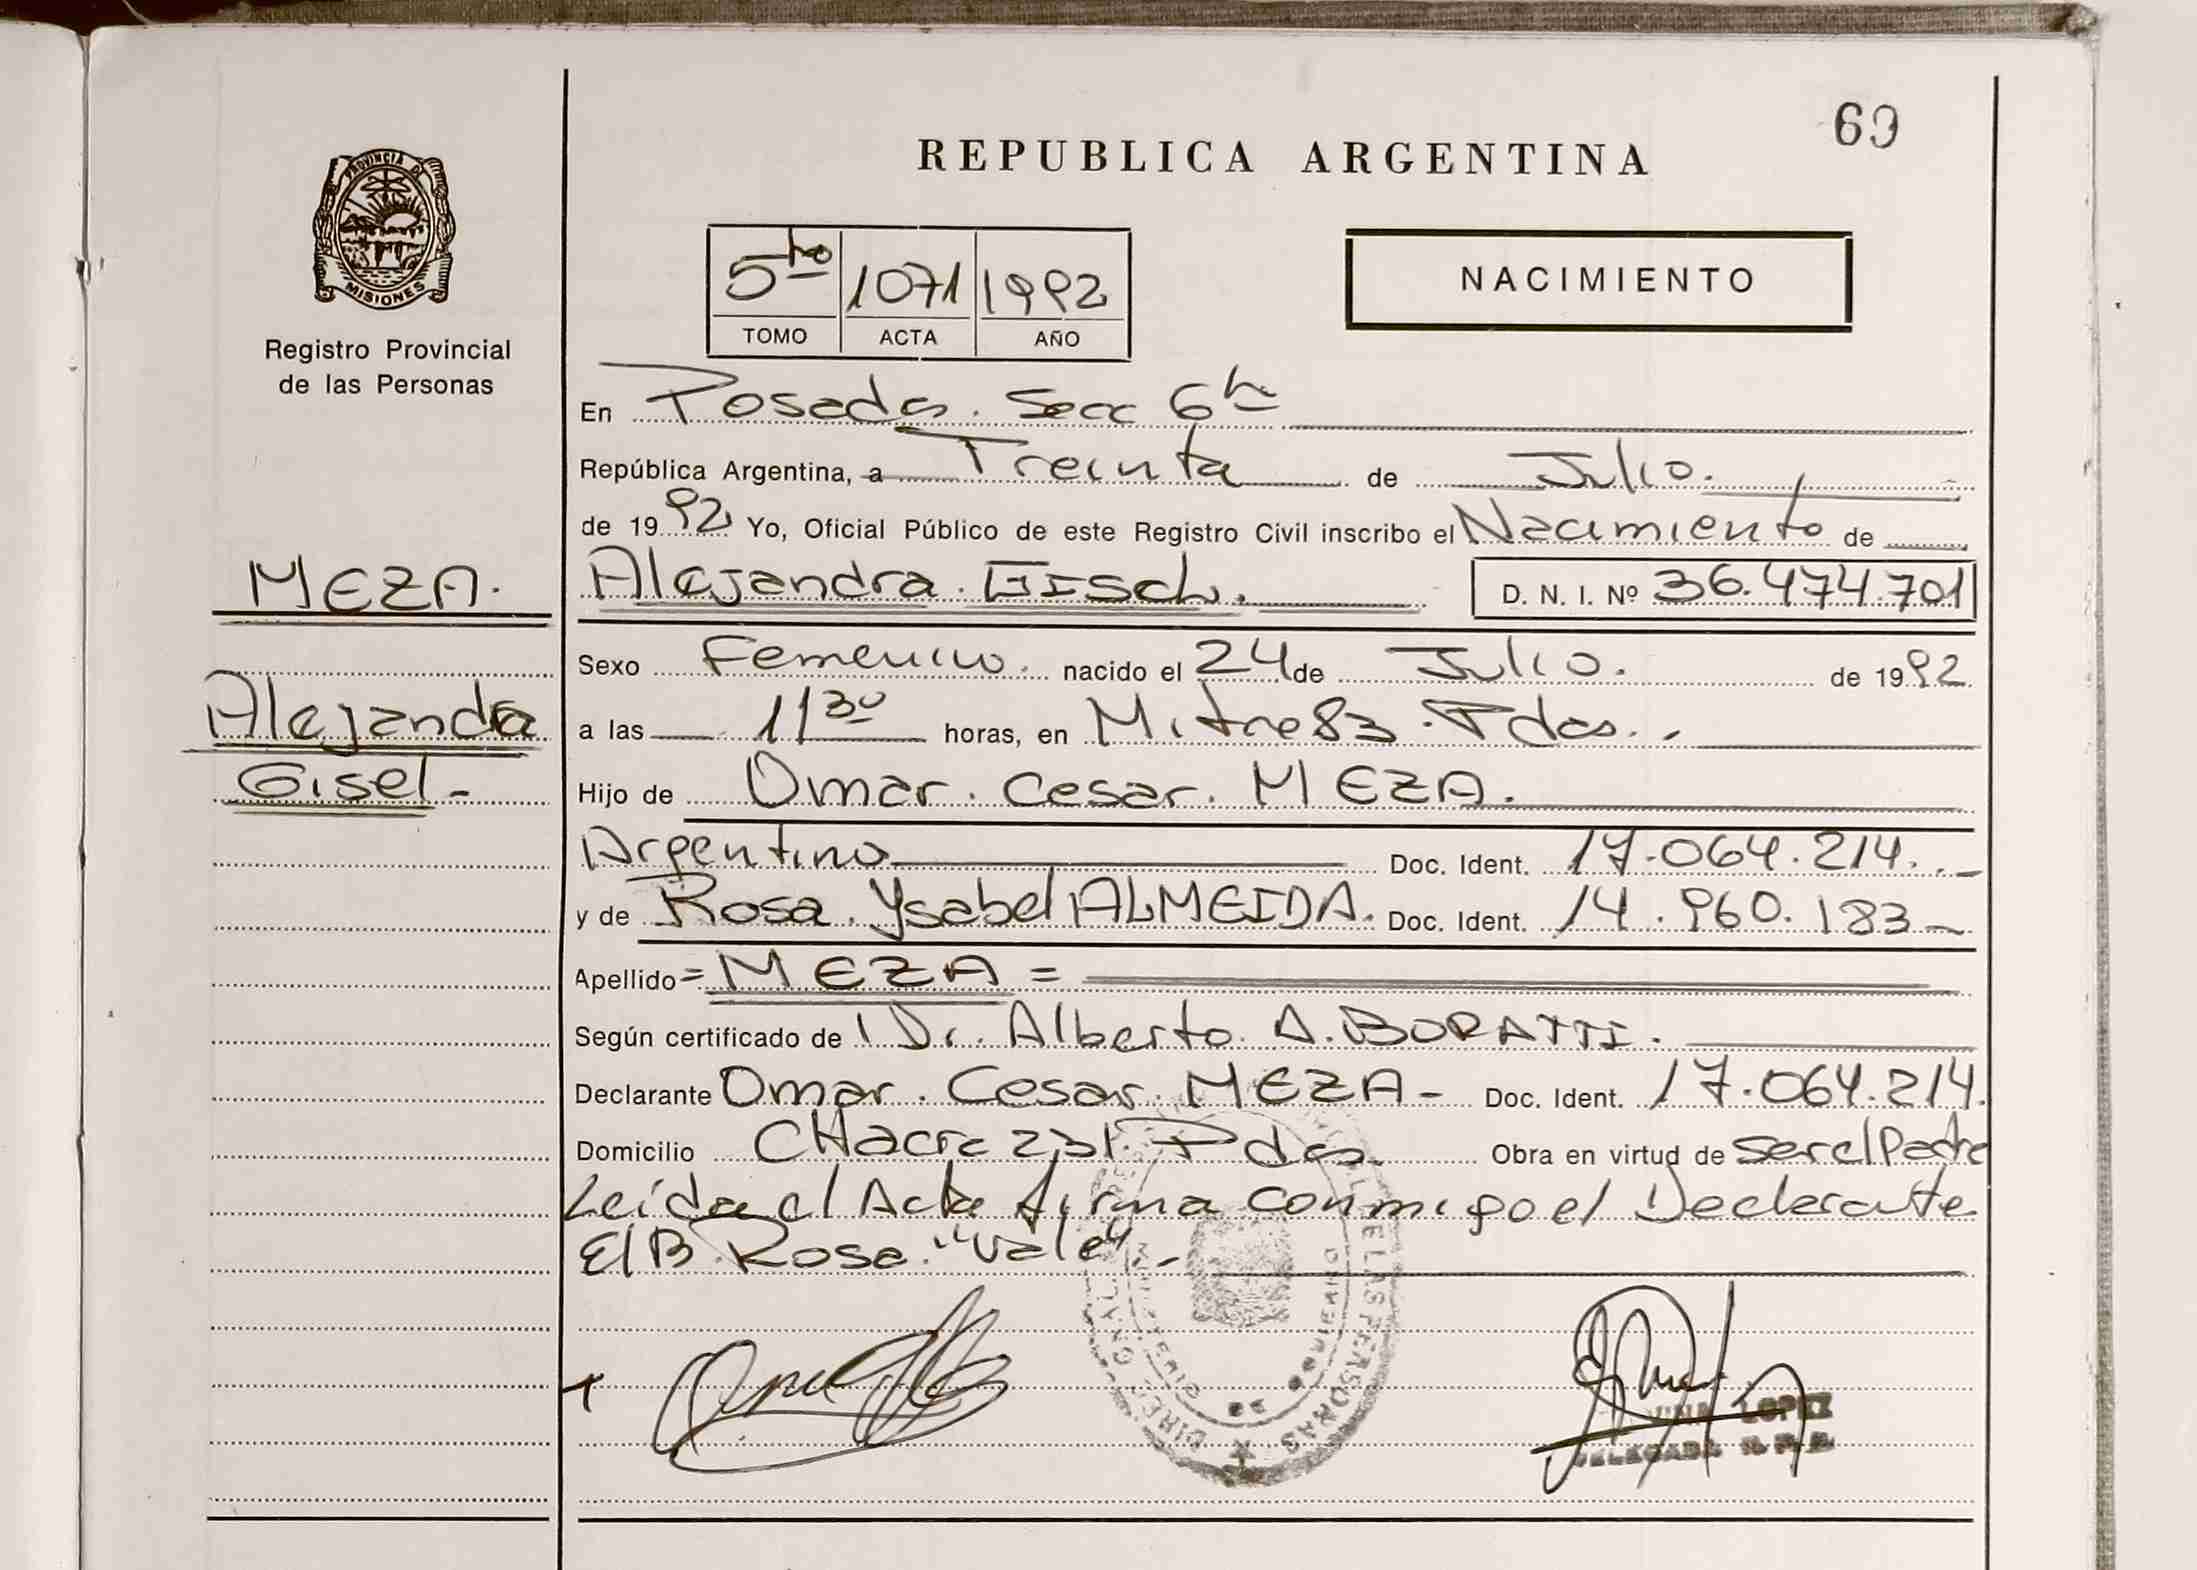 69
REPUBLICA ARGENTINA
PROVINCIA DE
MISIONES
Registro Provincial
de las Personas
5to 1071 1992
TOMO ACTA AÑO
NACIMIENTO
En Posadas. Secc 6ta
República Argentina, a Treinta de Julio.
de 1992 Yo, Oficial Público de este Registro Civil inscribo el Nacimiento de
MEZA.
Alejandra Gisel.
D. N. I. Nº 36.474.701
Sexo Femenino. nacido el 24 de Julio. de 1992
Alejandra
a las 11 30 horas, en Mitre 83. Pdas.
Gisel-
Hijo de Omar. Cesar. MEZA.
Argentino Doc. Ident. 17.064.214.
y de Rosa. Ysabel ALMEIDA. Doc. Ident. 14.960.183
Apellido = MEZA =
Según certificado de Dr. Alberto A. BORATTI.
Declarante Omar. Cesar. MEZA- Doc. Ident. 17.064.214.
Domicilio CHacra 231. Pdas. Obra en virtud de ser el Padre
Leida el Acta firma conmigo el Declarante
E/B Rosa. "Vale"-
LOPEZ
DELEGADA R. P. P.